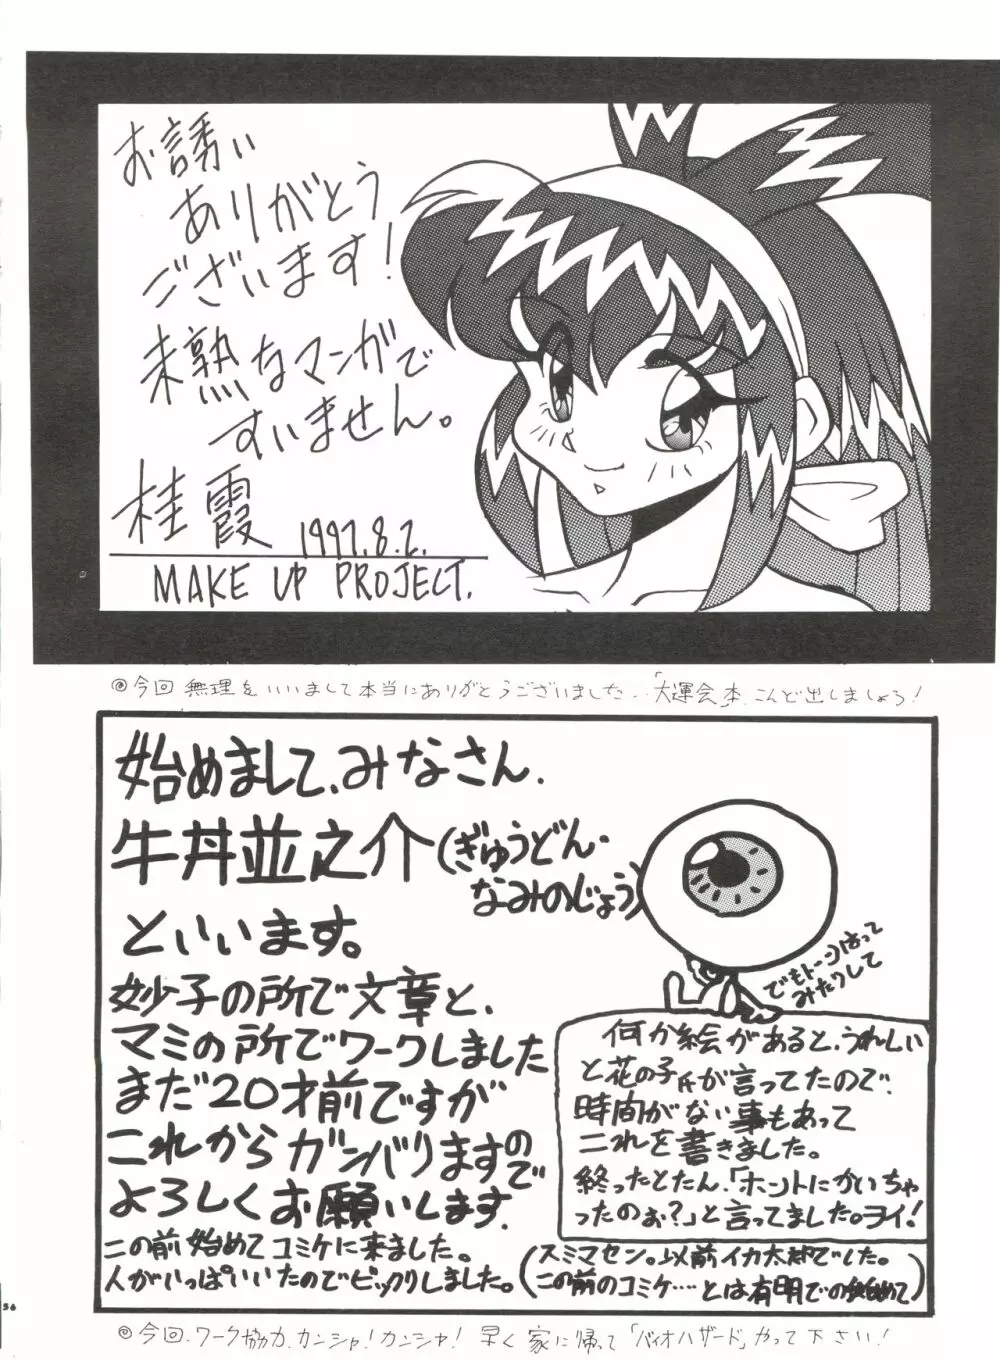 お誘い
ありがとう
ございます!
未熟なマンガで
すいません。
桂霞 1997.8.2.
MAKE UP PROJECT.
◎今回無理をいいまして本当にありがとうございました…「大運会」本、こんど出しましょう!
始めまして、みなさん.
牛丼並之介(ぎゅうどん・
なみのじょう)
といいます。
妙子の所で文章と、
マミの所でワークしました
まだ20才前ですが
これからガンバリますので
よろしくお願いします.
この前始めてコミケに来ました。
人がいっぱいいたのでビックリしました。
でもトーンはって
みたりして
何か絵があると、うれしい
と花の子氏が言ってたので、
時間がない事もあって
これを書きました。
終ったとたん、「ホントにかいちゃ
ったのぉ?」と言ってました。ヲイ!
(スミマセン。以前イカ太郎でした。
この前のコミケ‥‥とは有明での始めて)
56
◎今回、ワーク協力、カンシャ!カンシャ! 早く家に帰って「バイオハザード」やって下さい!